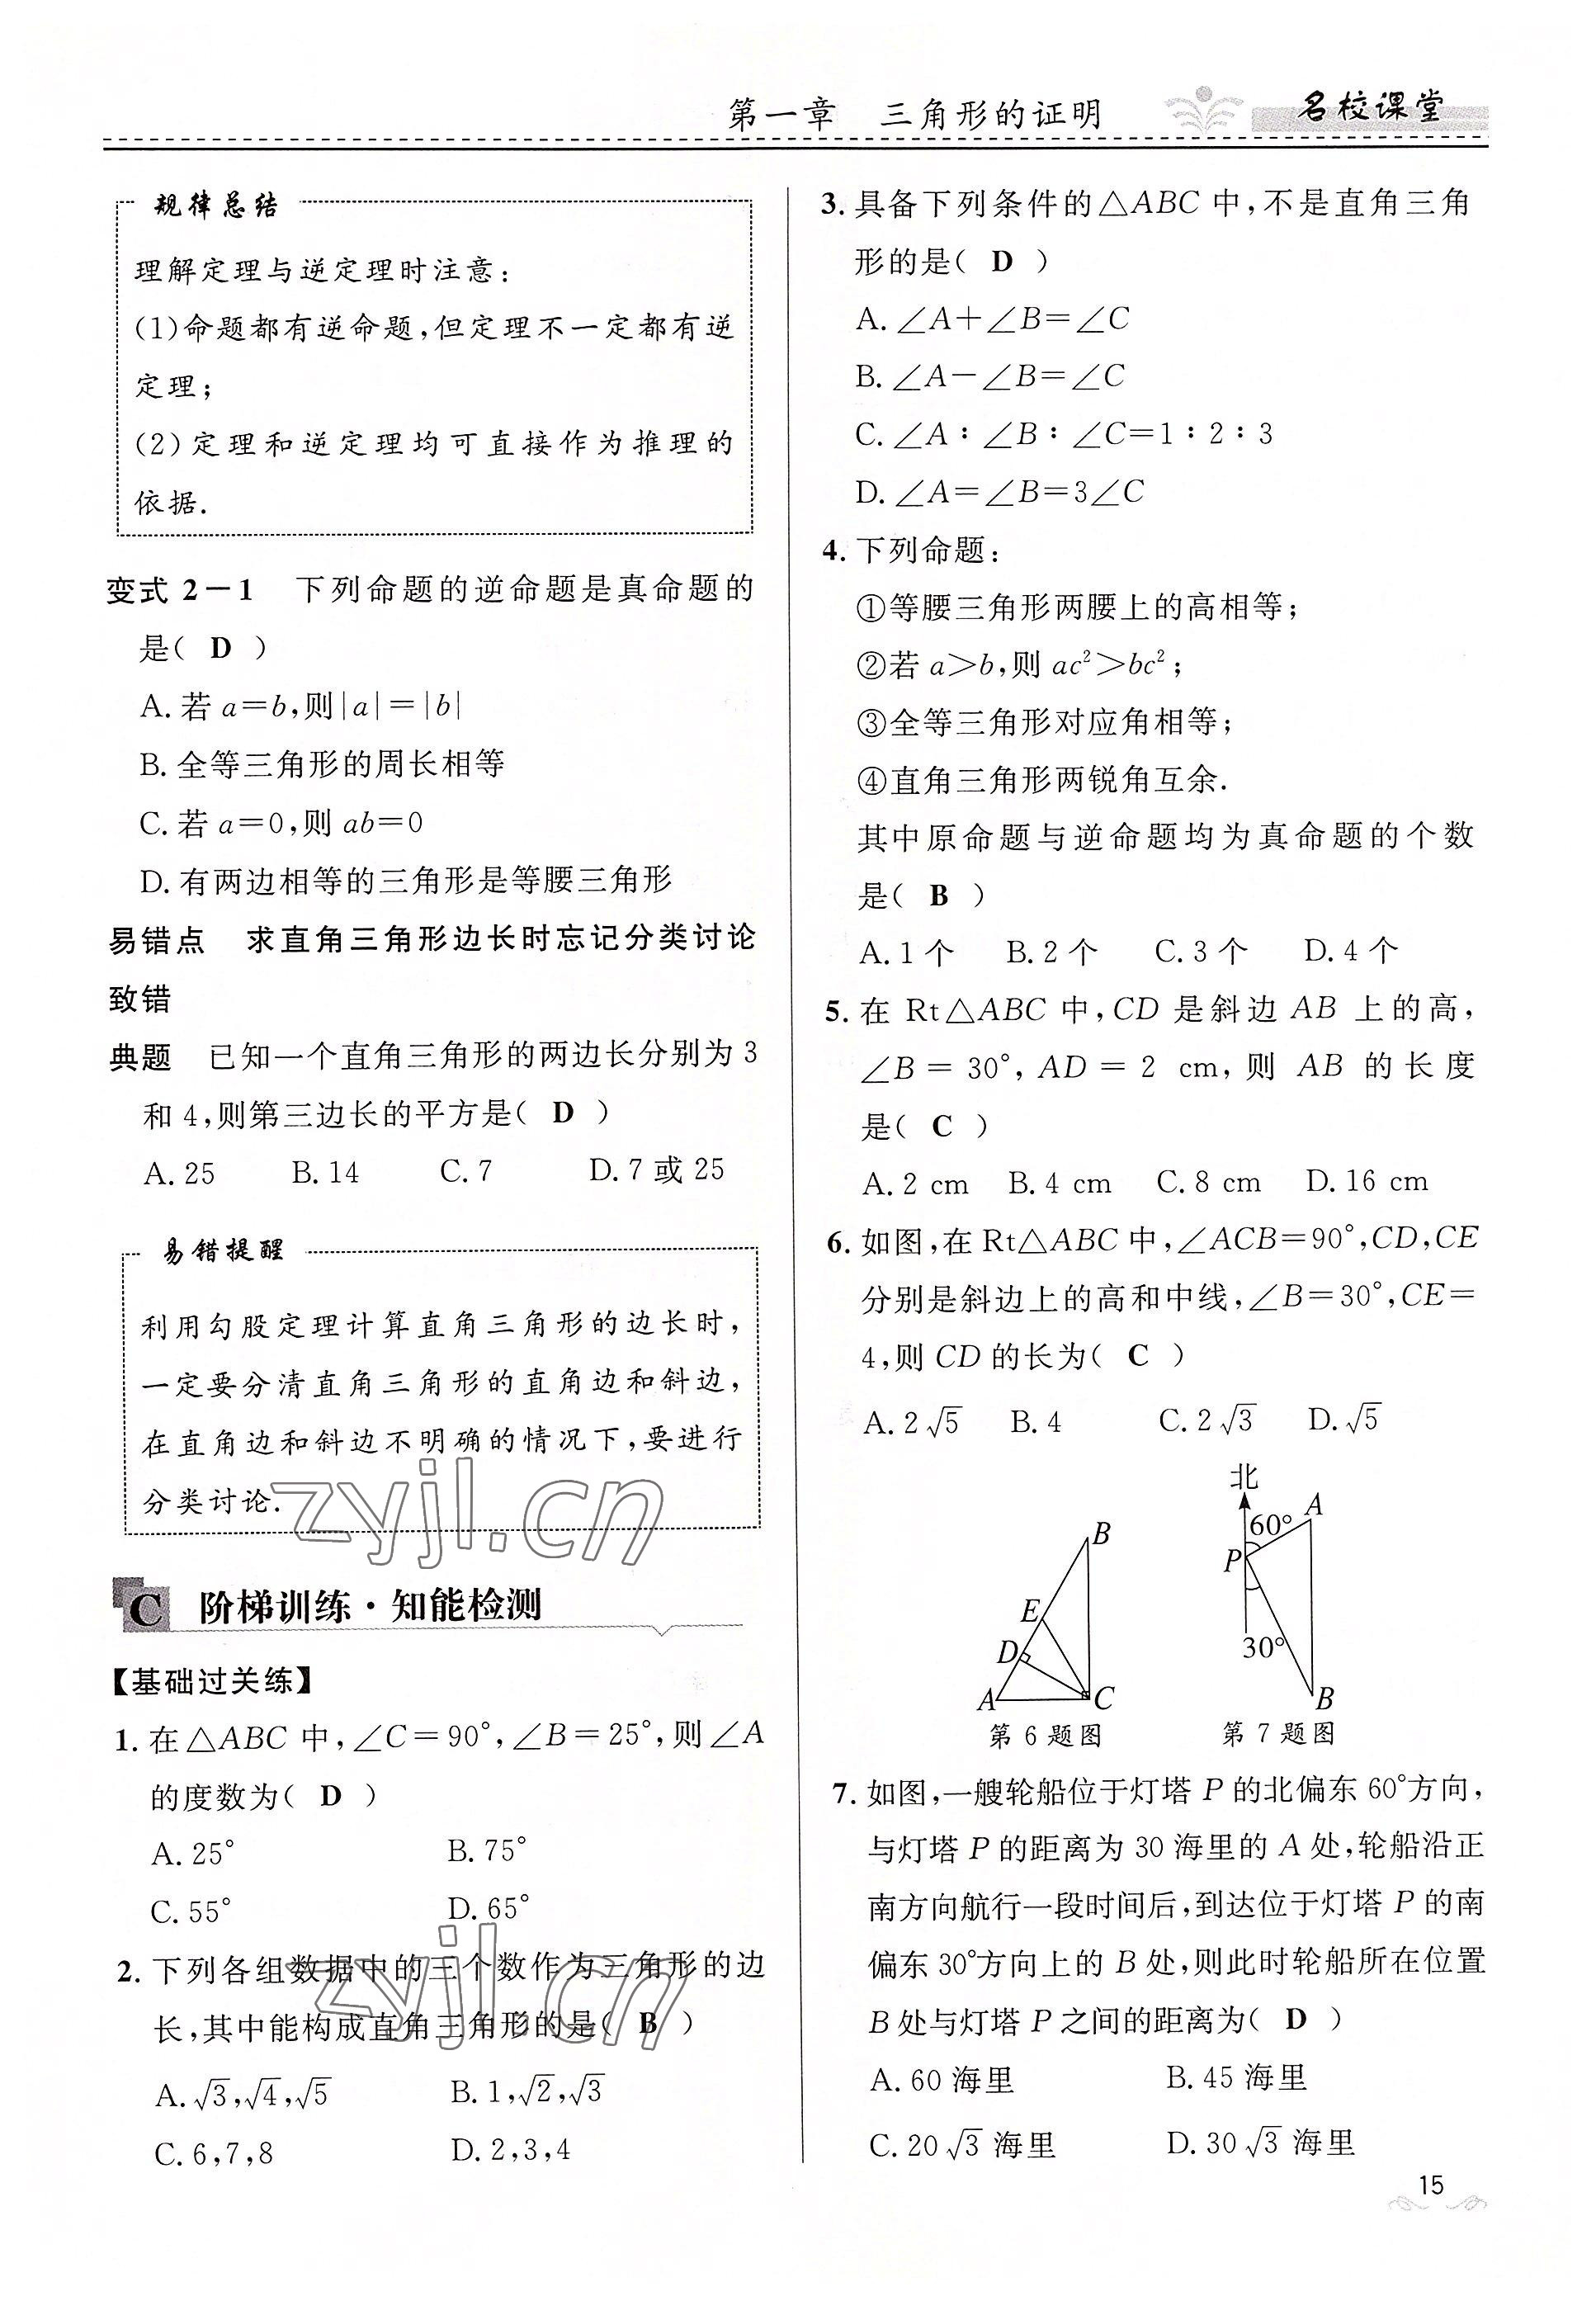 第一章 三角形的证明 名校课堂
规律总结
理解定理与逆定理时注意:
(1)命题都有逆命题,但定理不一定都有逆
定理;
(2)定理和逆定理均可直接作为推理的
依据.
变式 2-1 下列命题的逆命题是真命题的
是( D )
A. 若 a=b,则|a|=|b|
B. 全等三角形的周长相等
C. 若 a=0,则 ab=0
D. 有两边相等的三角形是等腰三角形
易错点 求直角三角形边长时忘记分类讨论
致错
典题 已知一个直角三角形的两边长分别为 3
和 4,则第三边长的平方是( D )
A. 25 B. 14 C. 7 D. 7 或 25
易错提醒
利用勾股定理计算直角三角形的边长时,
一定要分清直角三角形的直角边和斜边,
在直角边和斜边不明确的情况下,要进行
分类讨论.
zyjl.cn
C 阶梯训练·知能检测
【基础过关练】
1. 在 △ABC 中,∠C=90°,∠B=25°,则 ∠A
的度数为( D )
A. 25° B. 75°
C. 55° D. 65°
2. 下列各组数据中的三个数作为三角形的边
长,其中能构成直角三角形的是( B )
zyjl.cn
A. √3,√4,√5 B. 1,√2,√3
C. 6,7,8 D. 2,3,4
3. 具备下列条件的△ABC 中,不是直角三角
形的是( D )
A. ∠A+∠B=∠C
B. ∠A-∠B=∠C
C. ∠A∶∠B∶∠C=1∶2∶3
D. ∠A=∠B=3∠C
4. 下列命题:
①等腰三角形两腰上的高相等;
②若 a>b,则 ac²>bc²;
③全等三角形对应角相等;
④直角三角形两锐角互余.
其中原命题与逆命题均为真命题的个数
是( B )
A. 1 个 B. 2 个 C. 3 个 D. 4 个
5. 在 Rt△ABC 中,CD 是斜边 AB 上的高,
∠B=30°,AD=2 cm,则 AB 的长度
是( C )
A. 2 cm B. 4 cm C. 8 cm D. 16 cm
6. 如图,在 Rt△ABC 中,∠ACB=90°,CD,CE
分别是斜边上的高和中线,∠B=30°,CE=
4,则 CD 的长为( C )
A. 2√5 B. 4 C. 2√3 D. √5
B
E
D
A C
第 6 题图
北
A
60°
P
30°
B
第 7 题图
7. 如图,一艘轮船位于灯塔 P 的北偏东 60°方向,
与灯塔 P 的距离为 30 海里的 A 处,轮船沿正
南方向航行一段时间后,到达位于灯塔 P 的南
偏东 30°方向上的 B 处,则此时轮船所在位置
B 处与灯塔 P 之间的距离为( D )
A. 60 海里 B. 45 海里
C. 20√3 海里 D. 30√3 海里
15